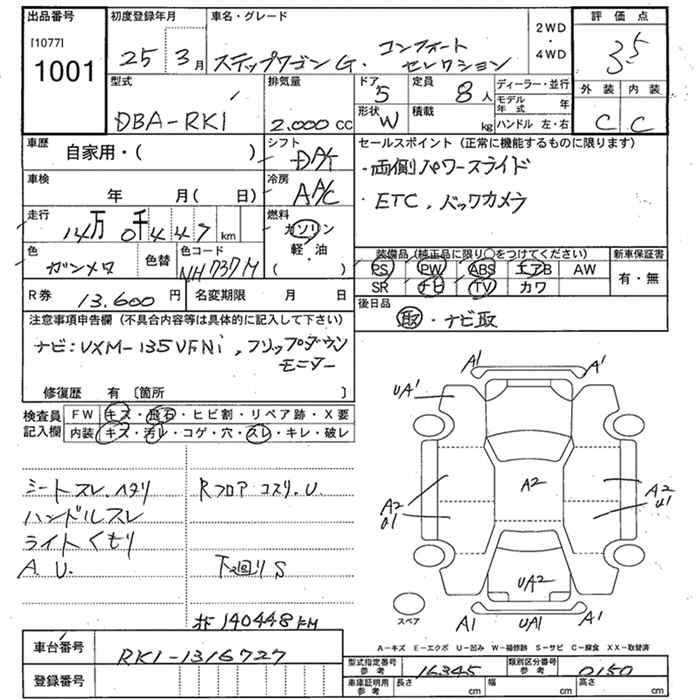 出品番号 初度登録年月 車名・グレード 2WD・4WD 評価点
[1077]
1001
25 3月 ステップワゴン G・コンフォートセレクション 35
型式 排気量 ドア 定員 ディーラー・並行 外装 内装
DBA-RK1 2.000cc 5 8人 モデル年式 年 C C
形状 W 積載 kg ハンドル 左・右
車歴 自家用・( ) シフト DAT セールスポイント(正常に機能するものに限ります)
・両側パワースライド
車検 年 月( 日) 冷房 AAC ・ETC、バックカメラ
走行 14万0千447km 燃料 ガソリン・軽・油( )
色 ガンメタ 色替 色コード NH737M 装備品(純正品に限り○をつけてください) 新車保証書
PS PW ABS エアB AW 有・無
SR ナビ TV カワ
R券 13.600円 名変期限 月 日 後日品
取・ナビ取
注意事項申告欄(不具合内容等は具体的に記入して下さい)
ナビ:VXM-135VFNi,フリップダウンモニター
修復歴 有〔箇所 〕
検査員記入欄 FW キズ・飛石・ヒビ割・リペア跡・X要
内装 キズ・汚レ・コゲ・穴・スレ・キレ・破レ
シートスレ.ヘタリ Rフロア コスリ.U.
ハンドルスレ
ライトくもり
A.U. 下廻りS
140448km
A1 A1
UA1
A2
A2 U1
A2 U1
UA2
スペア
A1 UA1 A1
A−キズ E−エクボ U−凹み W−補修跡 S−サビ C−腐食 XX−取替済
車台番号 RK1-1316727
型式指定番号 参考 16345 類別区分番号 参考 0150
登録番号
車庫証明用 参考 長さ cm 幅 cm 高さ cm